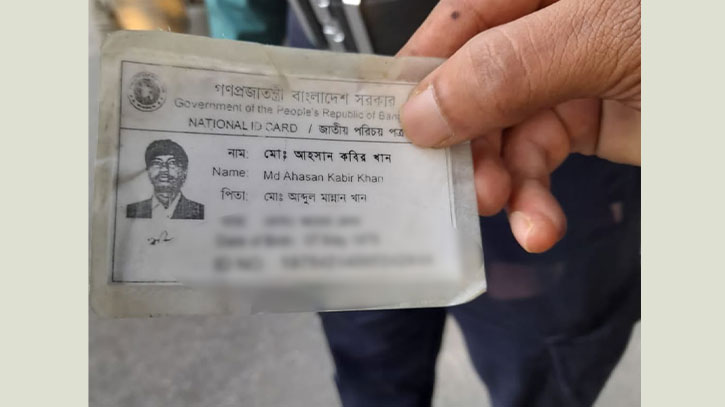 গণপ্রজাতন্ত্রী বাংলাদেশ সরকার
Government of the People's Republic of Ban
NATIONAL ID CARD / জাতীয় পরিচয় পত্র
নাম: মোঃ আহসান কবির খান
Name: Md Ahasan Kabir Khan
পিতা: মোঃ আব্দুল মান্নান খান